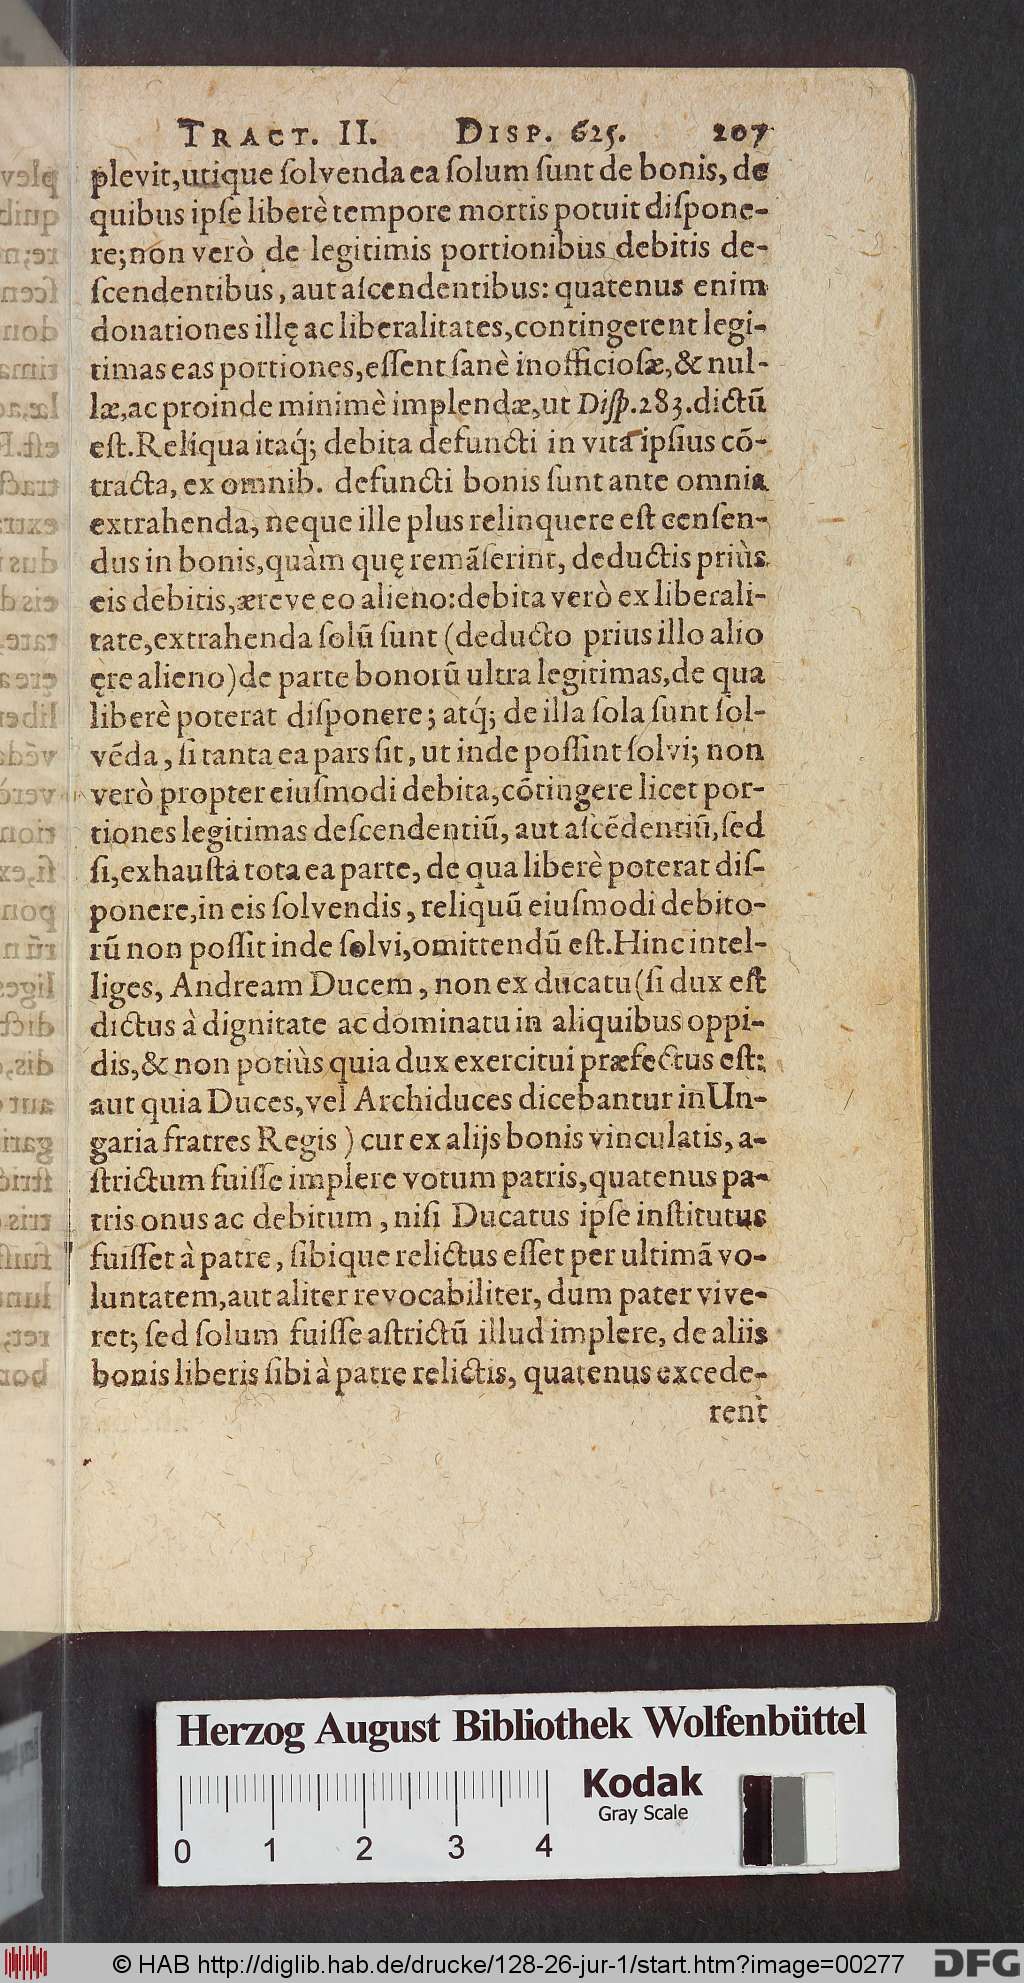 TRACT. II. DISP. 625. 207
plevit,utique ſolvenda ea ſolum ſunt de bonis, de
quibus ipſe liberè tempore mortis potuit diſpone-
re;non verò de legitimis portionibus debitis de-
ſcendentibus, aut aſcendentibus: quatenus enim
donationes illę ac liberalitates,contingerent legi-
timas eas portiones,eſſent ſanè inofficioſæ,& nul-
læ,ac proinde minimè implendæ,ut Diſp.283.dictũ
eſt.Reliqua itaq́; debita defuncti in vita ipſius cõ-
tracta, ex omnib. defuncti bonis ſunt ante omnia
extrahenda, neque ille plus relinquere eſt cenſen-
dus in bonis,quàm quę remãſerint, deductis priùs
eis debitis,æreve eo alieno:debita verò ex liberali-
tate,extrahenda ſolũ ſunt (deducto prius illo alio
ęre alieno)de parte bonorũ ultra legitimas,de qua
liberè poterat diſponere; atq́; de illa ſola ſunt ſol-
vẽda, ſi tanta ea pars ſit, ut inde poſſint ſolvi; non
verò propter eiuſmodi debita,cõtingere licet por-
tiones legitimas deſcendentiũ, aut aſcẽdentiũ,ſed
ſi,exhauſta tota ea parte, de qua liberè poterat diſ-
ponere,in eis ſolvendis, reliquũ eiuſmodi debito-
rũ non poſſit inde ſolvi,omittendũ eſt.Hinc intel-
liges, Andream Ducem, non ex ducatu(ſi dux eſt
dictus à dignitate ac dominatu in aliquibus oppi-
dis,& non potiùs quia dux exercitui præfectus eſt:
aut quia Duces,vel Archiduces dicebantur in Un-
garia fratres Regis) cur ex alijs bonis vinculatis, a-
ſtrictum fuiſſe implere votum patris,quatenus pa-
tris onus ac debitum, niſi Ducatus ipſe inſtitutus
fuiſſet à patre, ſibique relictus eſſet per ultimã vo-
luntatem,aut aliter revocabiliter, dum pater vive-
ret; ſed ſolum fuiſſe aſtrictũ illud implere, de aliis
bonis liberis ſibi à patre relictis, quatenus excede-
rent
Herzog August Bibliothek Wolfenbüttel
Kodak
Gray Scale
0 1 2 3 4
© HAB http://diglib.hab.de/drucke/128-26-jur-1/start.htm?image=00277
DFG